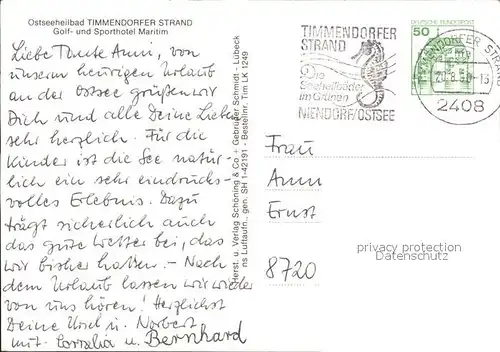 Ostseeheilbad TIMMENDORFER STRAND
Golf- und Sporthotel Maritim
Liebe Tante Anni, von
unserm heurigen Urlaub
an der Ostsee grüßen wir
Dich und alle Deine Lieben
sehr herzlich. Für die
Kinder ist die See natür-
lich ein sehr eindrucks-
volles Erlebnis. Dazu
trägt sicherlich auch
das gute Wetter bei, das
wir bisher hatten. - Nach
dem Urlaub lassen wir wieder
von uns hören! Herzlichst
Deine Ursel u. Norbert
mit Cornelia u. Bernhard
Herst. u. Verlag Schöning & Co + Gebrüder Schmidt, Lübeck
ns Luftaufn., gen. SH 1-42191 - Bestellnr. Tim LK 1249
TIMMENDORFER
STRAND
Die
Seeheilbäder
im Grünen
NIENDORF/OSTSEE
DEUTSCHE BUNDESPOST
50
TIMMENDORFER STRAND
2408
Frau
Anni
Ernst
privacy protection
Datenschutz
8720